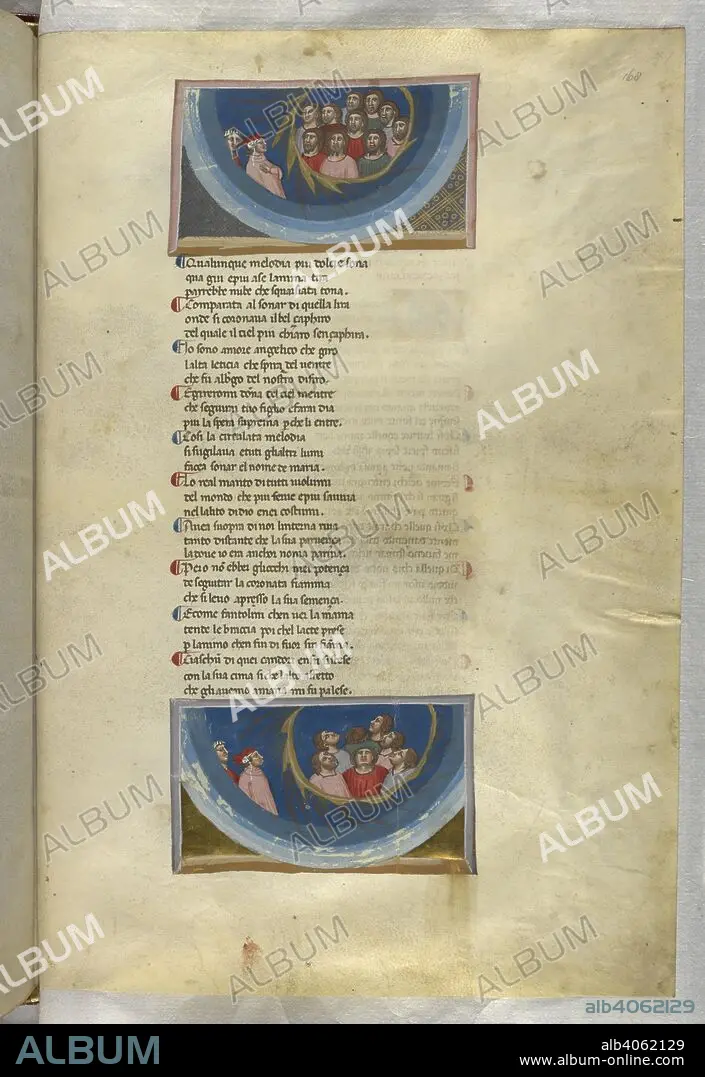 168
Qualunque melodia piu dolce sona
qua giu epiu ase lanima tira
parrebbe nube che squarciata tona.
Comparata al sonar di quella lira
onde si coronava il bel çaphiro
del quale il ciel piu chiaro sençaphira.
Io sono amore angelico che giro
lalta leticia che spira del ventre
che fu albgo del nostro disiro.
Egireromi dōna del ciel mentre
che seguirai tuo figlio efarai dia
piu la spera suprema pche li entre.
Cosi la circulata melodia
si sugilava etuti glialtri lumi
facea sonar el nome de maria.
Lo real manto di tutti uolumi
del mondo che piu ferue epiu saviua
nellalito di dio enei costumi.
Avea suopra di noi linterna riua
tanto distante che la sua paruença
la doue io era anchor non appariua.
Pero nō ebber gliocchi miei potença
de seguitar la coronata fiamma
che si leuo apresso la sua semença.
Ecome fantolini chen uer la mama
tende le braccia poi chel lacte prese
p lanimo chen fin di fuor sin fiāma.
Ciaschū di quei candori en su si stese
con la sua cima si che lalto affetto
che gliaueano amaria mi fu palese.
ALBUM
alb4062129
ALBUM
alb4062129
www.album-online.com